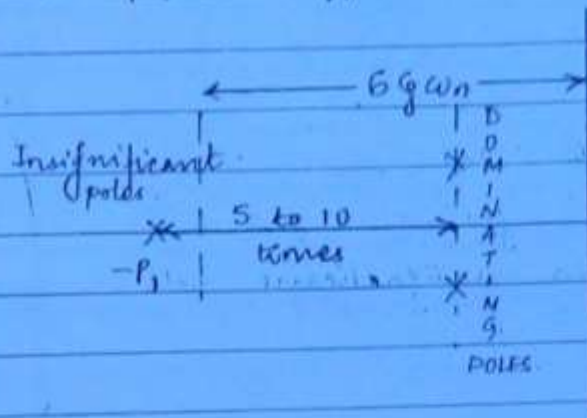 6 ξ ωn
Insignificant
poles
5 to 10
times
-P₁
DOMINATING
POLES